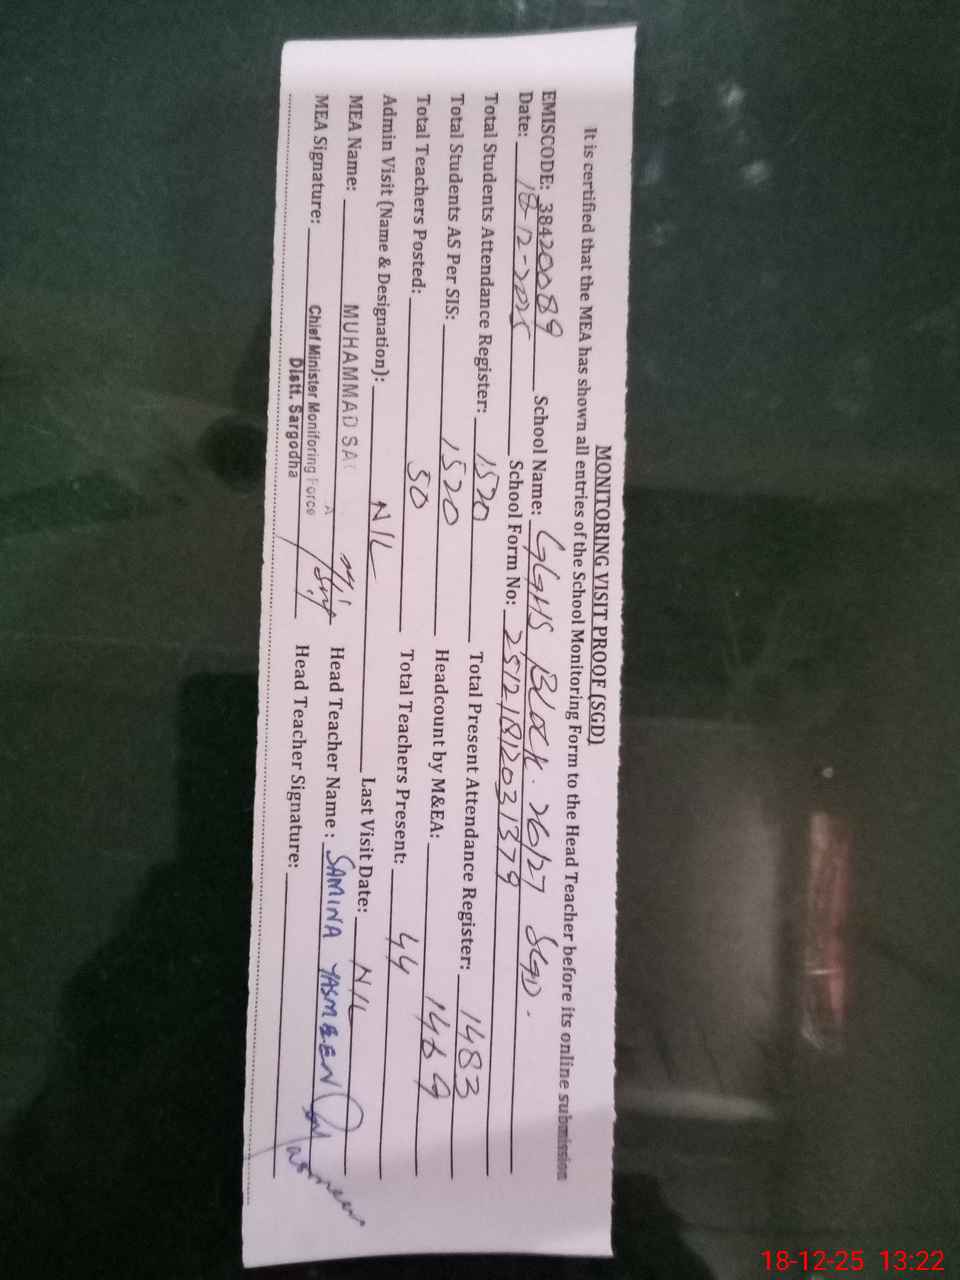 MONITORING VISIT PROOF (SGD)
It is certified that the MEA has shown all entries of the School Monitoring Form to the Head Teacher before its online submission
EMISCODE: 38420089 School Name: GGHS Block. 26/27 SGD.
Date: 18-12-2025 School Form No: 25121812031379
Total Students Attendance Register: 1520 Total Present Attendance Register: 1483
Total Students AS Per SIS: 1520 Headcount by M&EA: 1469
Total Teachers Posted: 50 Total Teachers Present: 44
Admin Visit (Name & Designation): NIL Last Visit Date: NIL
MEA Name: MUHAMMAD Head Teacher Name : SAMINA YASMEEN
MEA Signature: Chief Minister Monitoring Force Head Teacher Signature: Yasmeen
Distt. Sargodha
18-12-25 13:22